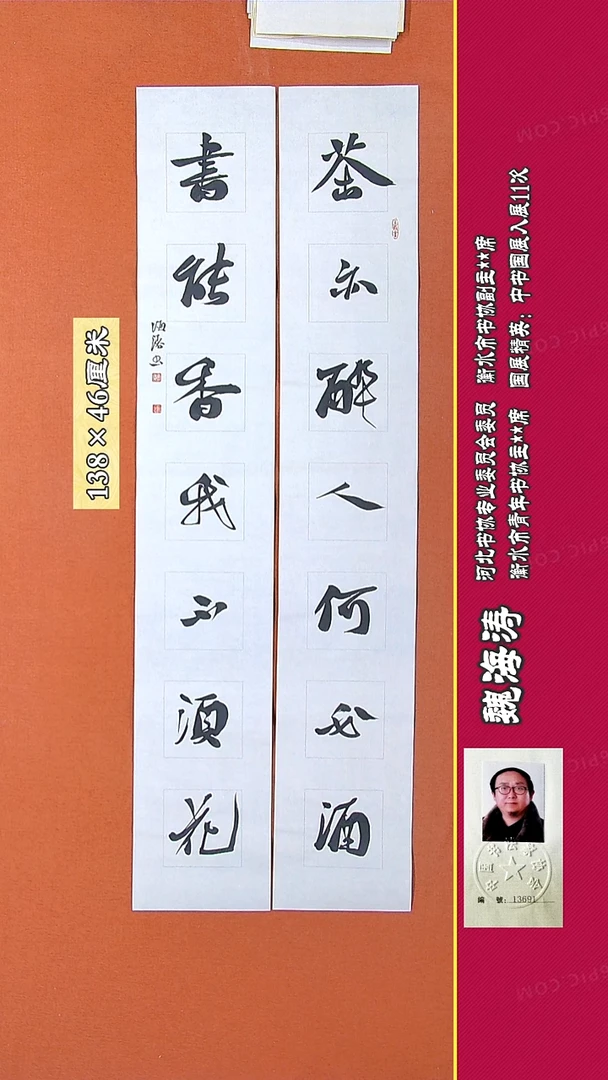 茶亦醉人何必酒
書能香我不須花
海涛书
138×46厘米
河北书协专业委员会委员 衡水市书协副主**席
衡水市青年书协主**席 国展精英：中书国展入展11次
魏海涛
编 號：13691